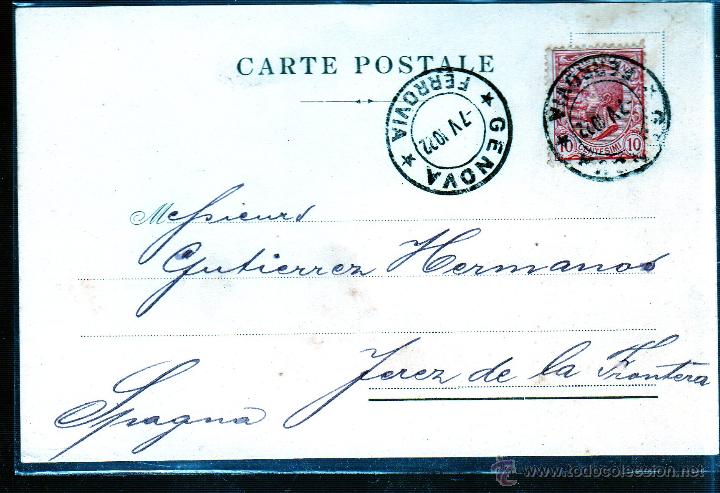 CARTE POSTALE
GENOVA
★ FERROVIA ★
-7 V 10 22
FERROVIA
10 CENTESIMI 10
Messieurs
Gutierrez Hermanos
Jerez de la Frontera
Spagna
© www.todocoleccion.net